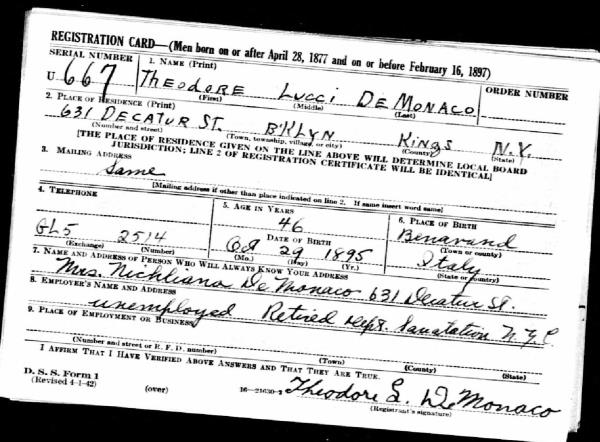 REGISTRATION CARD—(Men born on or after April 28, 1877 and on or before February 16, 1897)
SERIAL NUMBER 1. NAME (Print) ORDER NUMBER
U 667 THEODORE LUCCI DE MONACO
(First) (Middle) (Last)
2. PLACE OF RESIDENCE (Print)
631 DECATUR ST. B'KLYN KINGS N.Y.
(Number and street) (Town, township, village, or city) (County) (State)
[THE PLACE OF RESIDENCE GIVEN ON THE LINE ABOVE WILL DETERMINE LOCAL BOARD
JURISDICTION; LINE 2 OF REGISTRATION CERTIFICATE WILL BE IDENTICAL]
3. MAILING ADDRESS
Same
[Mailing address if other than place indicated on line 2. If same insert word same]
4. TELEPHONE 5. AGE IN YEARS 6. PLACE OF BIRTH
46 Benavand
DATE OF BIRTH (Town or county)
GL5 2514 Oct 29 1895 Italy
(Exchange) (Number) (Mo.) (Day) (Yr.) (State or country)
7. NAME AND ADDRESS OF PERSON WHO WILL ALWAYS KNOW YOUR ADDRESS
Mrs. Nichliana De Monaco 631 Decatur St.
8. EMPLOYER'S NAME AND ADDRESS
unemployed Retired Dept. Sanatation N.Y.C.
9. PLACE OF EMPLOYMENT OR BUSINESS
(Number and street or R. F. D. number) (Town) (County) (State)
I AFFIRM THAT I HAVE VERIFIED ABOVE ANSWERS AND THAT THEY ARE TRUE.
D. S. S. Form 1
(Revised 4-1-42) (over) 16—21630-2 Theodore L. DeMonaco
(Registrant's signature)